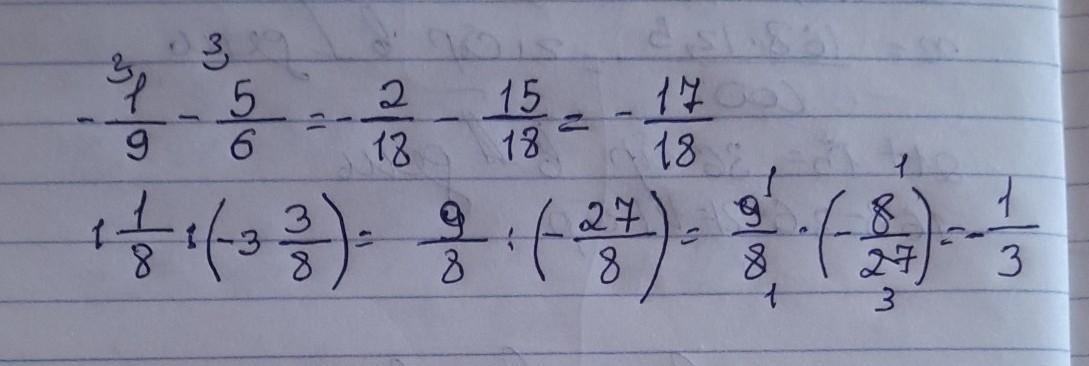 -1/9 - 5/6 = -2/18 - 15/18 = -17/18
1 1/8 : (-3 3/8) = 9/8 : (-27/8) = 9/8 · (-8/27) = -1/3